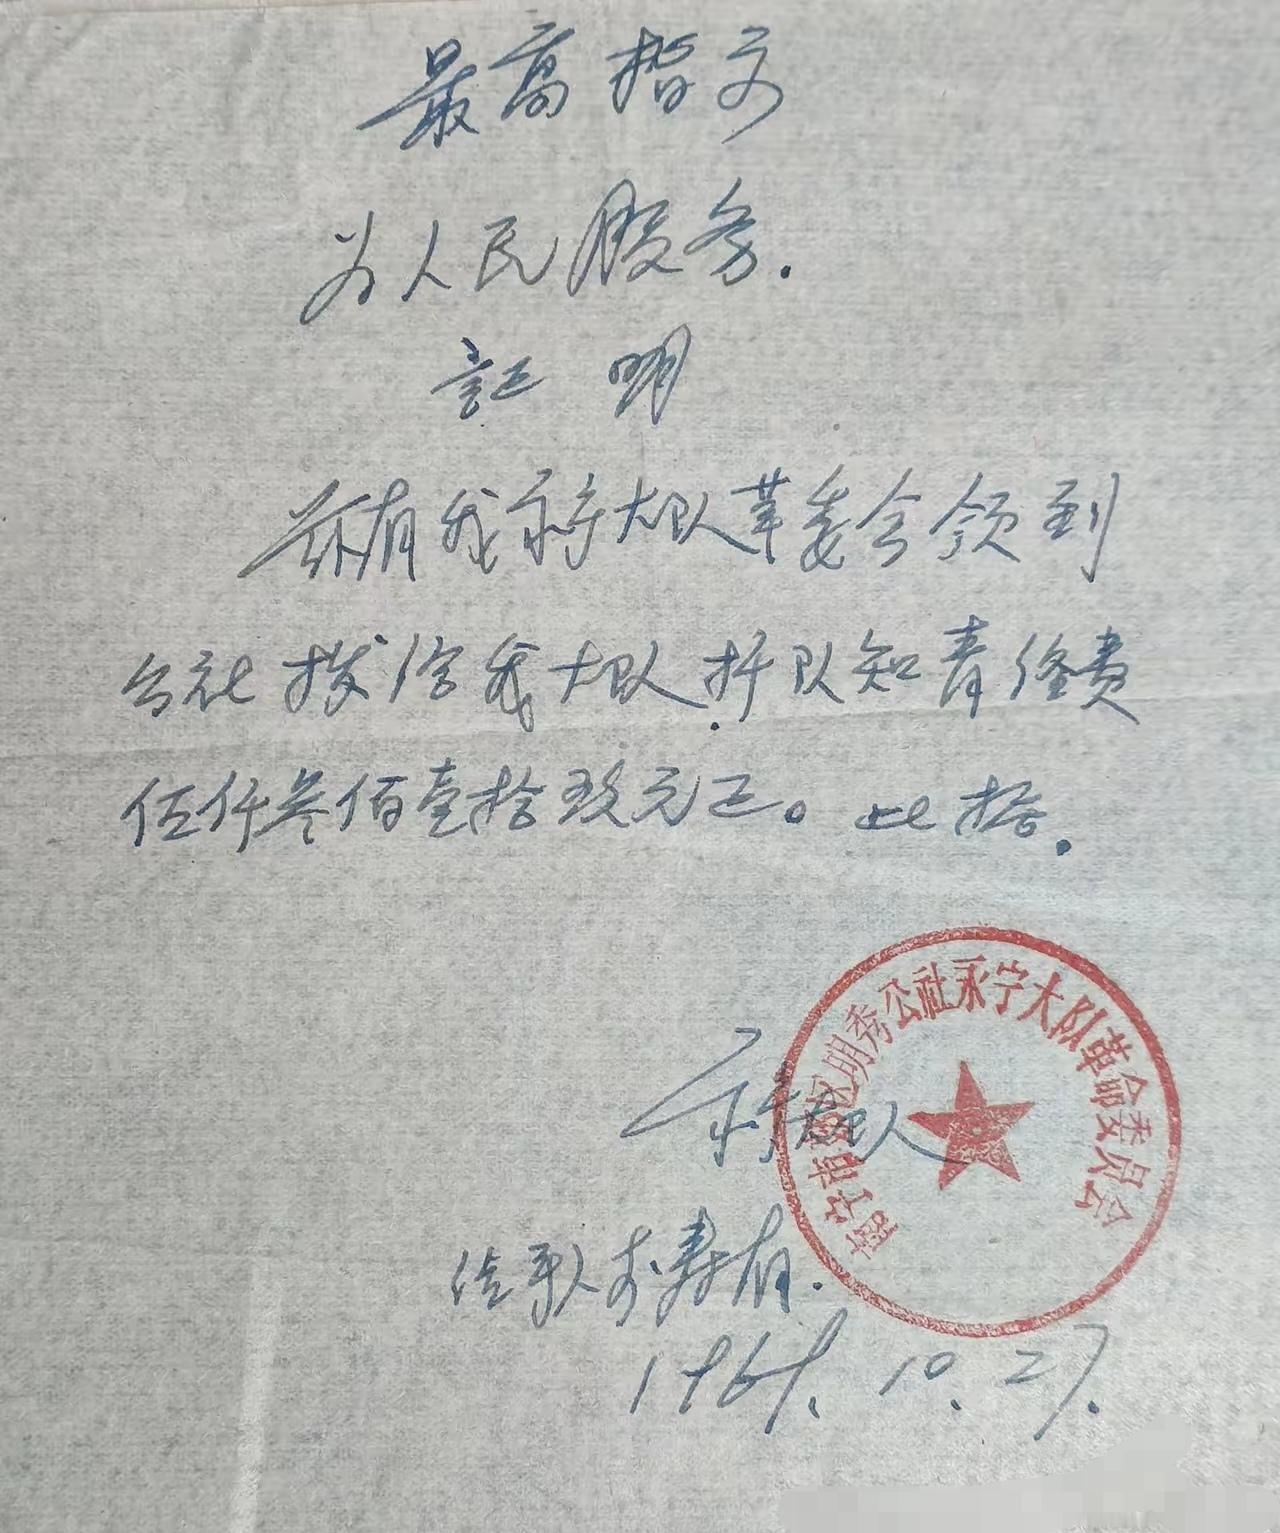 最高指示
为人民服务.
証明
兹有我永宁大队革委会领到
公社拨给我大队插队知青经费
伍仟叁佰壹拾玖元正。此据.
永宁大队
南宁市郊区明秀公社永宁大队革命委员会
经手人 寿有.
196 . 10. 27.